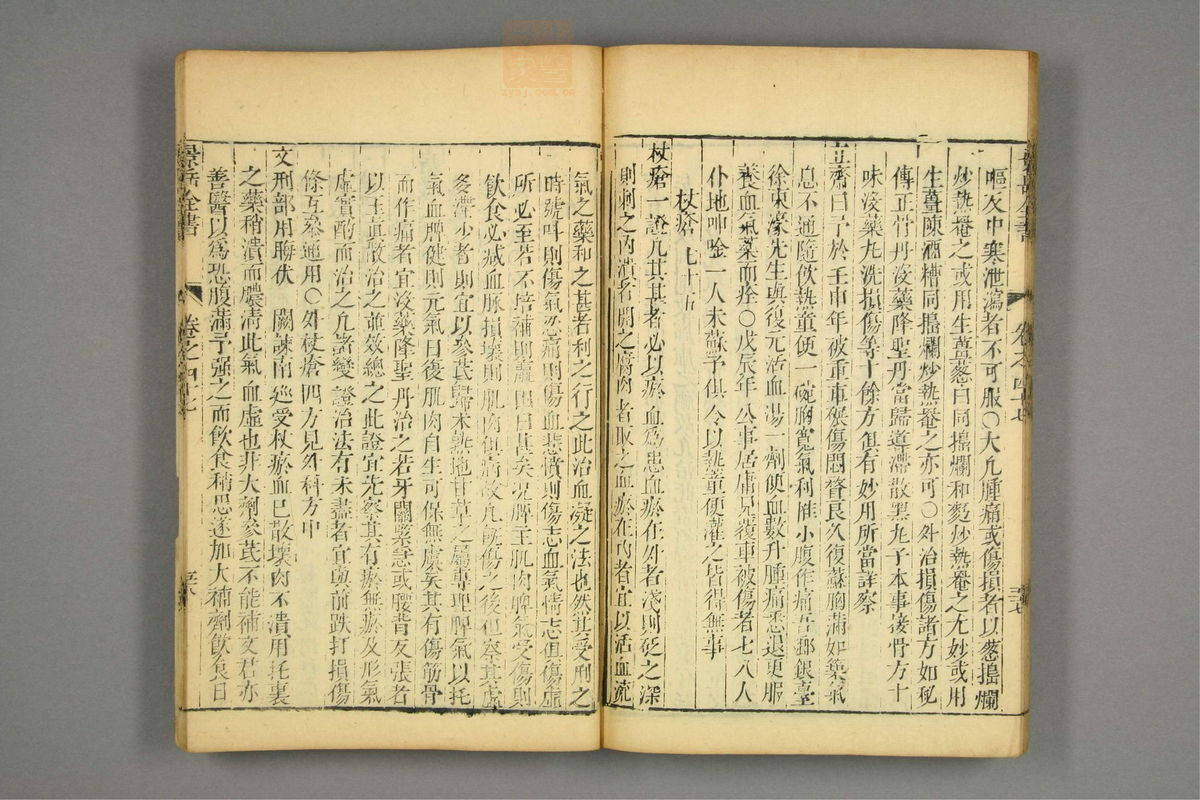 嘔及中寒泄瀉者不可服〇大凡腫痛或傷損者以葱搗爛
炒熱罨之或用生薑葱白同搗爛和麪炒熱罨之尤妙或用
生薑陳酒糟同搗爛炒熱罨之亦可〇外治損傷諸方如秘
傳正骨丹沒藥降聖丹當歸導滯散黑丸子本事接骨方十
味沒藥丸洗損傷等十餘方俱有妙用所當詳察
立齋曰予於壬申年被重車碾傷悶瞀良久復蘇胸滿如築氣
息不通隨飲熱童便一碗胸寬氣利惟小腹作痛吾鄉銀臺
徐東濠先生與復元活血湯一劑便血數升腫痛悉退更服
養血氣藥而痊〇戊辰年公事居庸見覆車被傷者七八人
仆地呻吟一人未蘇予俱令以熱童便灌之皆得無事
杖瘡 七十五
杖瘡一證凡其甚者必以瘀血爲患血瘀在外者淺則砭之深
則刺之內潰者開之腐肉者取之血瘀在內者宜以活血流
氣之藥和之甚者利之行之此治血凝之法也然其受刑之
時號呌則傷氣忍痛則傷血悲憤則傷志血氣情志俱傷虛
所必至若不培補則羸困日甚矣况脾主肌肉脾氣受傷則
飲食必減血脉損壞則肌肉俱病故凡旣傷之後但察其虛
多滯少者則宜以參芪歸朮熟地甘草之屬專理脾氣以托
氣血脾健則元氣日復肌肉自生可保無虞矣其有傷筋骨
而作痛者宜沒藥降聖丹治之若牙關緊急或腰背反張者
以玉眞散治之並效總之此證宜先察其有瘀無瘀及形氣
虛實酌而治之凡諸變證治法有未盡者宜與前跌打損傷
條互參通用〇外杖瘡四方見外科方中
文刑部用晦伏闕諫南廵受杖瘀血已散壞肉不潰用托裏
之藥稍潰而膿淸此氣血虛也非大劑參芪不能補文君亦
善醫以爲恐腹滿予强之而飲食稍思遂加大補劑飲食日
景岳全書
卷之四十七
景岳全書
卷之四十七